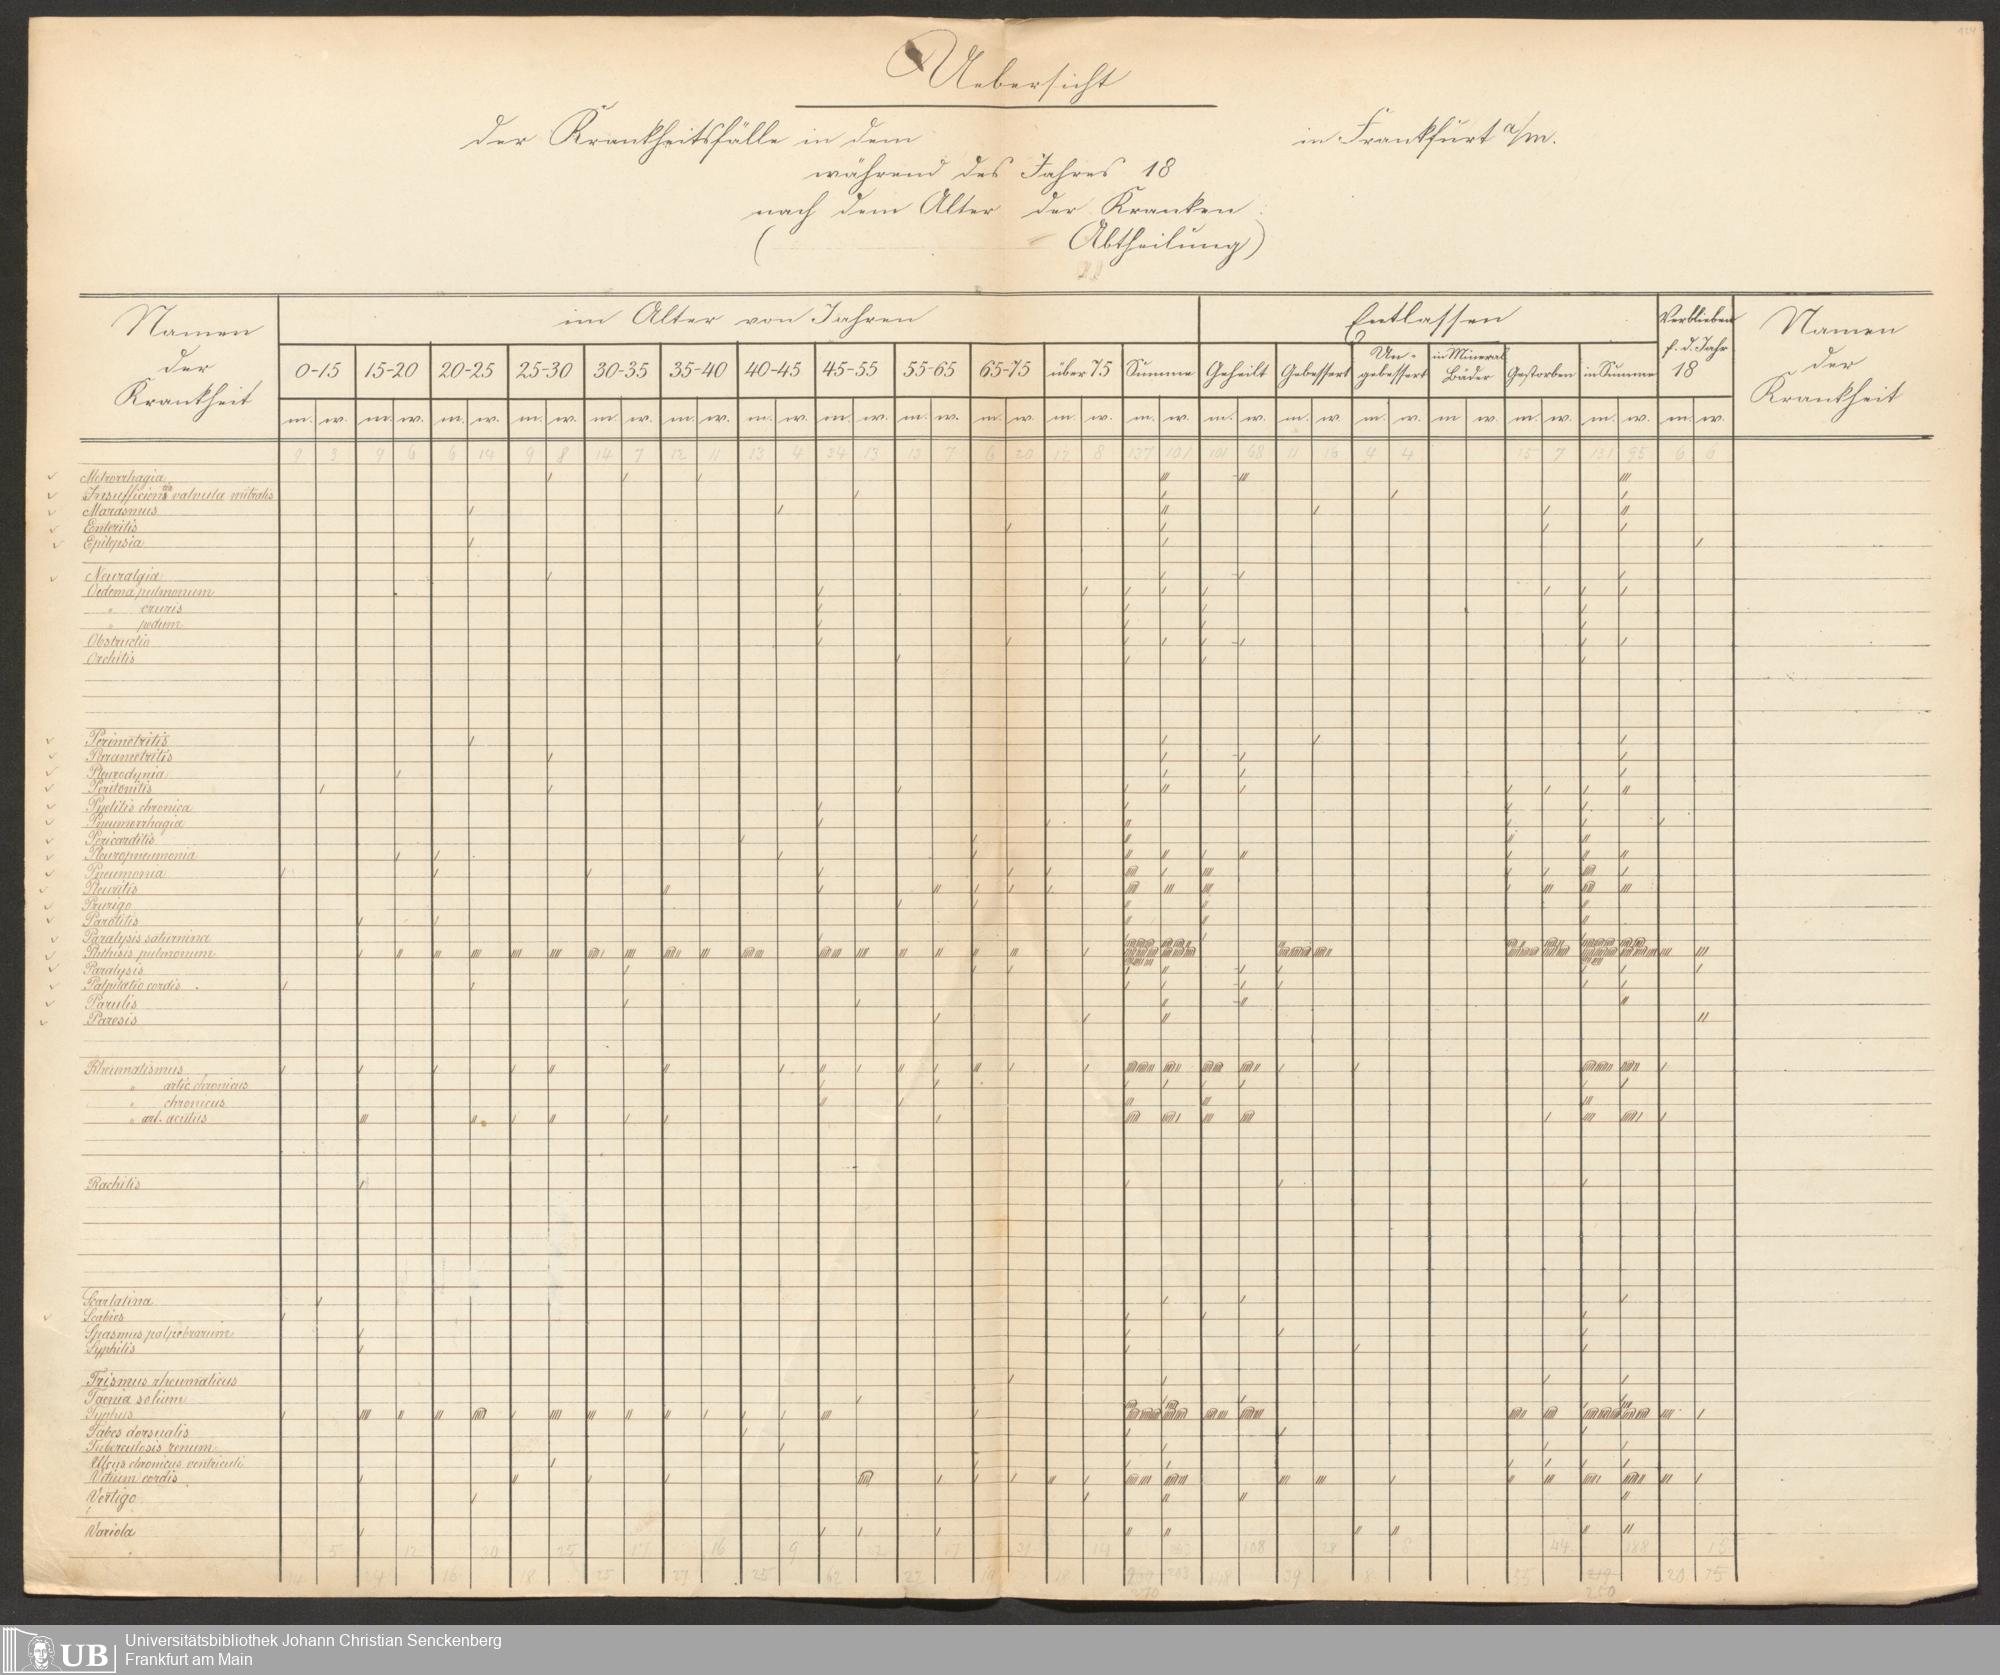 Uebersicht
der Krankheitsfälle in dem in Frankfurt a/m.
während des Jahres 18
nach dem Alter der Kranken
( Abtheilung)
Namen der Krankheit
im Alter von Jahren
Entlassen
Verblieben f. d. Jahr 18
Namen der Krankheit
0-15 15-20 20-25 25-30 30-35 35-40 40-45 45-55 55-65 65-75 über 75 Summe Geheilt Gebessert Un-gebessert in Mineral Bäder Gestorben in Summe
m. w. m. w. m. w. m. w. m. w. m. w. m. w. m. w. m. w. m. w. m. w. m. w. m. w. m. w. m. w. m w. m. w. m. w. m. w.
9 3 9 6 6 14 9 8 14 7 12 11 13 4 34 13 13 7 6 20 12 8 137 101 101 68 11 16 4 4 15 7 131 95 6 6
Metrorrhagia
Insufficientia valvula mitralis
Marasmus
Enteritis
Epilepsia
Neuralgia
Oedema pulmonum
" cruris
" pedum
Obstructio
Orchitis
Perimetritis
Parametritis
Pleurodynia
Peritonitis
Pyelitis chronica
Pneumorrhagia
Pericarditis
Pleuropneumonia
Pneumonia
Pleuritis
Prurigo
Parotitis
Paralysis saturnina
Phthisis pulmonum
Paralysis
Palpitatio cordis
Parulis
Paresis
Rheumatismus
" artic. chronicus
" chronicus
" art. acutus
Rachitis
Scarlatina
Scabies
Spasmus palpebrarum
Syphilis
Trismus rheumaticus
Taenia solium
Typhus
Tabes dorsualis
Tuberculosis renum
Ulcus chronicus ventriculi
Vitium cordis
Vertigo
Variola
5 12 30 25 17 16 9 27 17 31 14 203 108 28 8 44 188 15
14 24 16 18 25 27 25 62 22 19 18 203 148 39 8 55 20 15
270 250
Universitätsbibliothek Johann Christian Senckenberg
Frankfurt am Main
UB